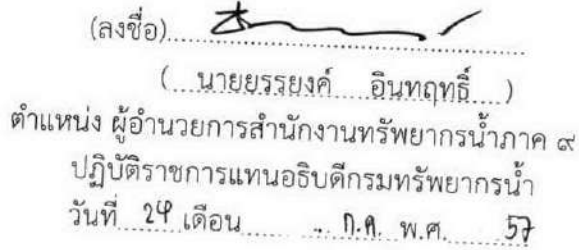 (ลงชื่อ)
( นายยรรยงค์ อินทฤทธิ์ )
ตำแหน่ง ผู้อำนวยการสำนักงานทรัพยากรน้ำภาค ๙
ปฏิบัติราชการแทนอธิบดีกรมทรัพยากรน้ำ
วันที่ 24 เดือน ก.ค. พ.ศ. 57